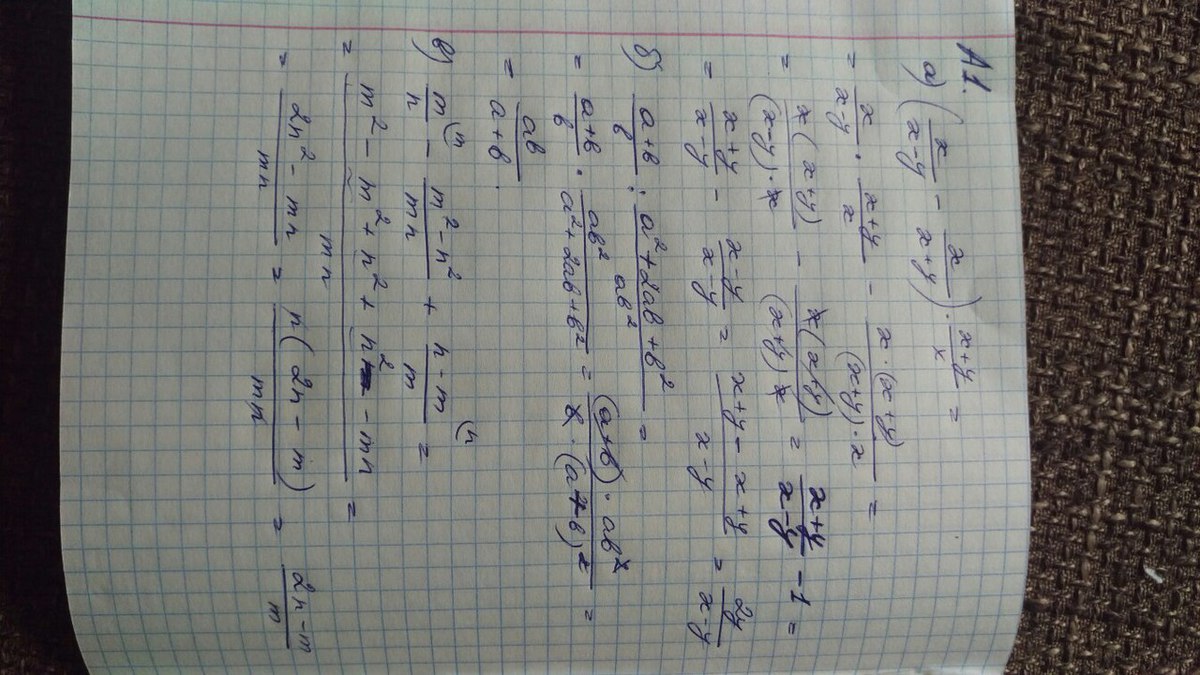 А1.
а) (x/(x-y) - x/(x+y)) · (x+y)/x =
= x/(x-y) · (x+y)/x - (x·(x+y))/((x+y)·x) =
= (x(x+y))/((x-y)·x) - (x(x+y))/((x+y)x) = (x+y)/(x-y) - 1 =
= (x+y)/(x-y) - (x-y)/(x-y) = (x+y-x+y)/(x-y) = 2y/(x-y)
б) (a+b)/b : (a²+2ab+b²)/(ab²) =
= (a+b)/b · ab²/(a²+2ab+b²) = ((a+b)·ab²)/(b·(a+b)²) =
= ab/(a+b).
в) m/n (m - (m²-n²)/(mn) + (n-m)/m (n =
= (m²-m²+n²+n²-mn)/(mn) =
= (2n²-mn)/(mn) = (n(2n-m))/(mn) = (2n-m)/m